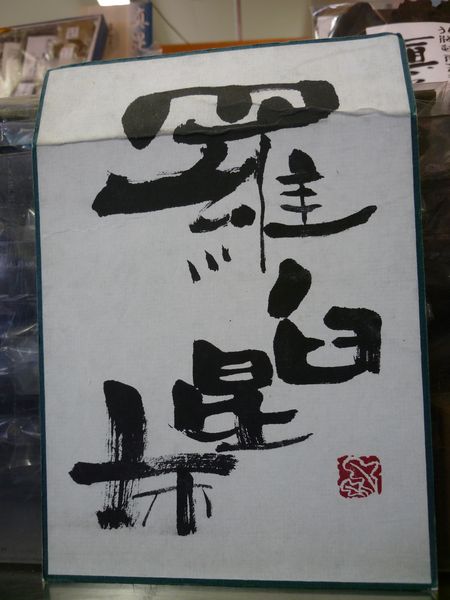 羅臼昆布